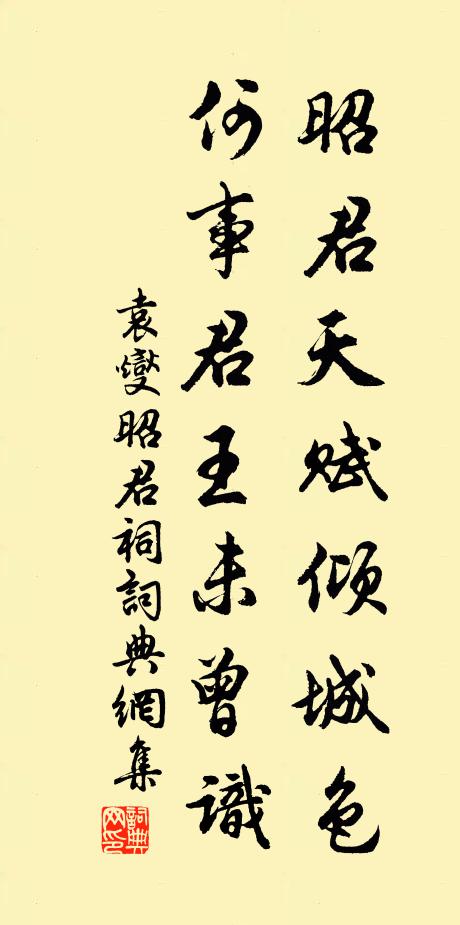 昭君天赋倾城色
何事君王未曾識
袁燮昭君祠詞典網集
詞典网印